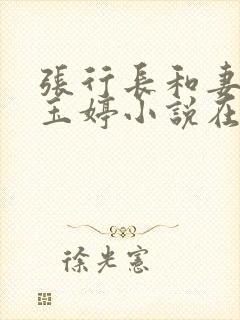 張行長和妻
玉婷小說在
徐光憲